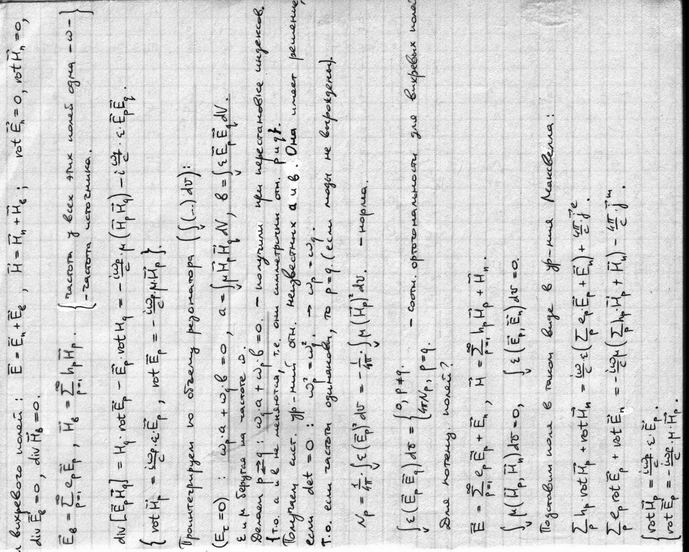 и вихревого полей: E⃗ = E⃗п + E⃗в, H⃗ = H⃗п + H⃗в; rot E⃗п = 0, rot H⃗п = 0,
div E⃗в = 0, div H⃗в = 0.
E⃗в = ∑p=1∞ ep E⃗p, H⃗в = ∑p=1∞ hp H⃗p. {частота у всех этих полей одна - ω -
- частота источника.
div[E⃗p H⃗q] = H⃗q · rot E⃗p - E⃗p · rot H⃗q = - iωp/c μ(H⃗p H⃗q) - i ωq/c · ε · E⃗p E⃗q
{rot H⃗p = iωp/c ε E⃗p, rot E⃗p = - iωp/c μ H⃗p}.
Проинтегрируем по объему резонатора (∫v(...)dv):
(Eτ = 0): ωp a + ωq b = 0, a = ∫v μ H⃗p H⃗q dV, b = ∫v ε E⃗p E⃗q dV.
ε и μ берутся на частоте ω.
Делаем p⇄q: ωq a + ωp b = 0. - получили при перестановке индексов.
{т.о. a и b не меняются, т.е. они симметричны отн. p и q}.
Получаем сист. ур-ний отн. неизвестных a и b. Она имеет решение,
если det = 0: ωp² = ωq² → ωp = ωq.
Т.о. если частоты одинаковы, то p = q (если моды не вырождены).
Np = 1/4π · ∫v ε(E⃗p)² dv = - 1/4π · ∫v μ(H⃗p)² dv. - норма.
∫v ε(E⃗p E⃗q) dv = {0, p≠q. 4πNp, p=q. - соотн. ортогональности для вихревых полей
Для потенц. полей?
E⃗ = ∑p=1∞ ep E⃗p + E⃗п, H⃗ = ∑p=1∞ hp H⃗p + H⃗п.
∫v μ(H⃗p, H⃗п) dv = 0, ∫v ε(E⃗p, E⃗п) dv = 0.
Подставим поле в таком виде в ур-ния Максвелла:
∑p hp rot H⃗p + rot H⃗п = iω/c ε(∑p ep E⃗p + E⃗п) + 4π/c j⃗ᵉ
∑p ep rot E⃗p + rot E⃗п = - iω/c μ(∑p hp H⃗p + H⃗п) - 4π/c j⃗ᵐ.
{rot H⃗p = iωp/c ε · E⃗p.
rot E⃗p = - iωp/c · μ · H⃗p.